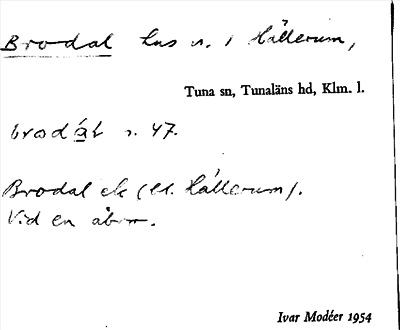 Brodal hus n. i Hällerum,
Tuna sn, Tunaläns hd, Klm. l.
s. 47.
Brodal ek (lt. Hällerum).
Vid en åbro.
Ivar Modéer 1954